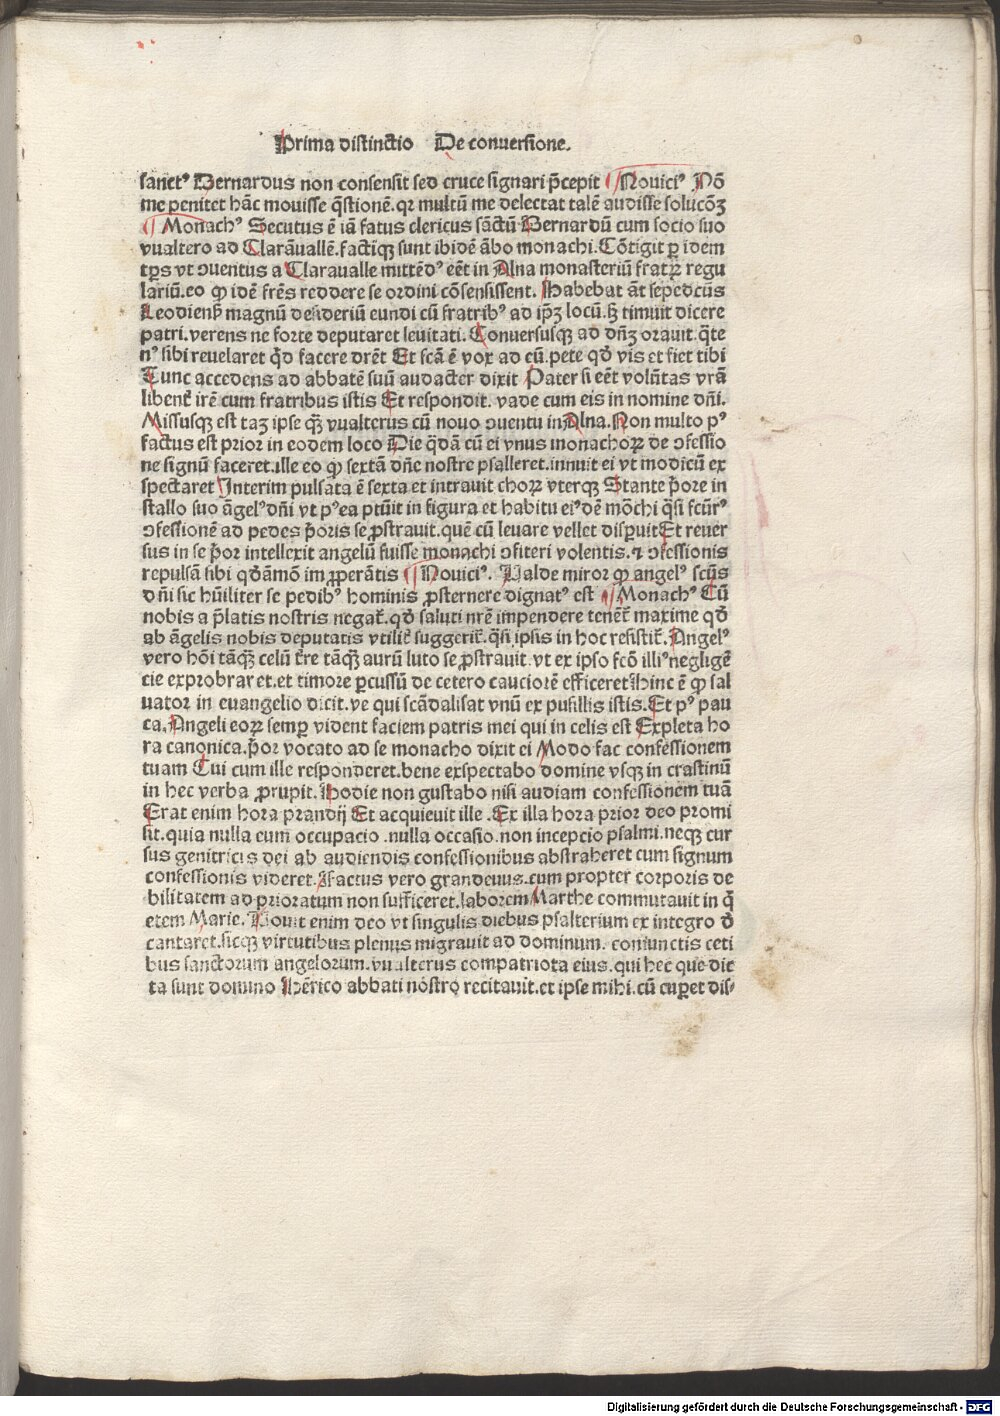 Prima distinctio De conuersione.
sanctꝰ Bernardus non consensit sed cruce signari p̄cepit ¶ Nouiciꝰ Nō
me penitet hāc mouisse q̄stionē. qꝛ multū me delectat talē audisse solucōꝫ
¶ Monachꝰ Secutus ē iā fatus clericus sāctū Bernardū cum socio suo
vualtero ad Clarāuallē. factiqꝫ sunt ibidē ābo monachi. Cōtigit ꝑ idem
tp̄s vt ↄuentus a Claraualle mittēdꝰ eēt in Alna monasteriū fratꝝ regu
lariū. eo ꝙ idē fr̄es reddere se ordini cōsensissent. Habebat āt sepedcūs
Leodienẜ magnū desideriū eundi cū fratribꝰ ad ip̄ꝫ locū. ꝫ timuit dicere
patri. verens ne forte deputaret leuitati. Conuersusqꝫ ad dn̄ꝫ orauit. q̄te
nꝰ sibi reuelaret qd̄ facere dr̄et Et scā ē vox ad eū. pete qd̄ vis et fiet tibi
Tunc accedens ad abbatē suū audacter dixit Pater si eēt volūtas vrā
libent̄ irē cum fratribus istis Et respondit. vade cum eis in nomine dn̄i.
Missusqꝫ est taꝫ ipse qꝫ vualterus cū nouo ↄuentu in Alna. Non multo pꝰ
factus est prior in eodem loco Die q̄dā cū ei vnus monachoꝝ de ↄfessio
ne signū faceret. ille eo ꝙ sextā dn̄e nostre psalleret. innuit ei vt modicū ex
spectaret Interim pulsata ē sexta et intrauit choꝝ vterqꝫ Stante p̄ore in
stallo suo āgelꝰ dn̄i vt pꝰea ptuit in figura et habitu eiꝰdē mōchi q̄si fcūrꝰ
ↄfessionē ad pedes p̄oris se ꝓstrauit. quē cū leuare vellet disꝑuit Et reuer
sus in se p̄or intellexit angelū fuisse monachi ↄfiteri volentis. ⁊ ↄfessionis
repulsā sibi qd̄āmō imꝓperātis ¶ Nouiciꝰ. Valde miror ꝙ angelꝰ scūs
dn̄i sic hūiliter se pedibꝰ hominis ꝓsternere dignatꝰ est ¶ Monachꝰ Cū
nobis a p̄latis nostris negat̄. qd̄ saluti nrē impendere tenēt̄ maxime qd̄
ab āgelis nobis deputatis vtilit̄ suggerit̄. q̄si ipsis in hoc resistit̄. Angelꝰ
vero hōi tāqꝫ celū t̄re tāqꝫ aurū luto se ꝓstrauit. vt ex ipso fcō illiꝰ negligē
cie exprobraret. et timore ꝑcussū de cetero cauciorē efficeret Hinc ē ꝙ sal
uator in euangelio dicit. ve qui scādalisat vnū ex pusillis istis. Et pꝰ pau
ca. Angeli eoꝝ semꝑ vident faciem patris mei qui in celis est Expleta ho
ra canonica. p̄or vocato ad se monacho dixit ei Modo fac confessionem
tuam Cui cum ille responderet. bene exspectabo domine vsqꝫ in crastinū
in hec verba ꝓrupit. Hodie non gustabo nisi audiam confessionem tuā
Erat enim hora prandij Et acquieuit ille. Ex illa hora prior deo promi
sit. quia nulla eum occupacio. nulla occasio. non incepcio psalmi. neqꝫ cur
sus genitricis dei ab audiendis confessionibus abstraheret cum signum
confessionis videret. Factus vero grandeuus. cum propter corporis de
bilitatem ad prioratum non sufficeret. laborem Marthe commutauit in q̄
etem Marie. Vouit enim deo vt singulis diebus psalterium ex integro d̄
cantaret. sicqꝫ virtutibus plenus migrauit ad dominum. coniunctis ceti
bus sanctorum angelorum. vualterus compatriota eius. qui hec que dic
ta sunt domino Hērico abbati nostro recitauit. et ipse mihi. cū cuꝑet dis-
Digitalisierung gefördert durch die Deutsche Forschungsgemeinschaft - DFG